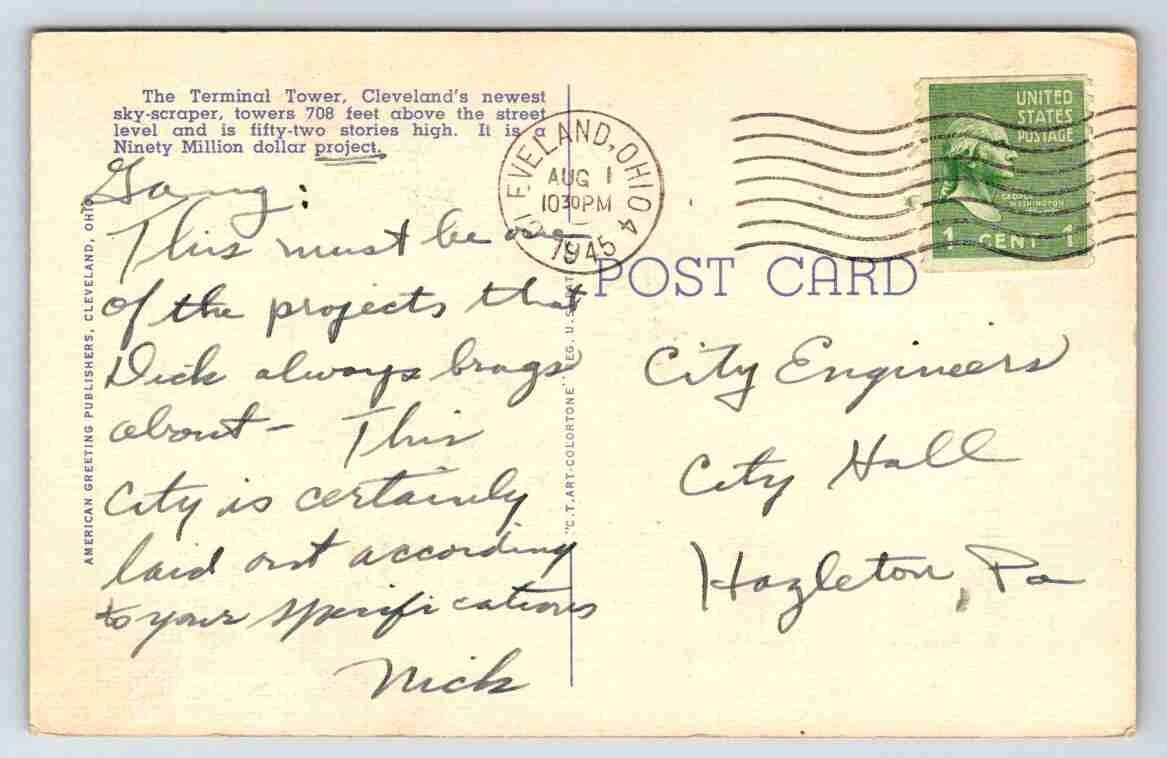 The Terminal Tower, Cleveland's newest
sky-scraper, towers 708 feet above the street
level and is fifty-two stories high. It is a
Ninety Million dollar project.
Gang:
This must be one
of the projects that
Dick always brags
about- This
City is certainly
laid out according
to your specifications
Nick
AMERICAN GREETING PUBLISHERS, CLEVELAND, OHIO
"C.T. ART-COLORTONE" REG. U.S.
CLEVELAND, OHIO 4
AUG 1
10 30 PM
1945
UNITED
STATES
POSTAGE
GEORGE
WASHINGTON
1 CENT 1
POST CARD
City Engineers
City Hall
Hazleton, Pa